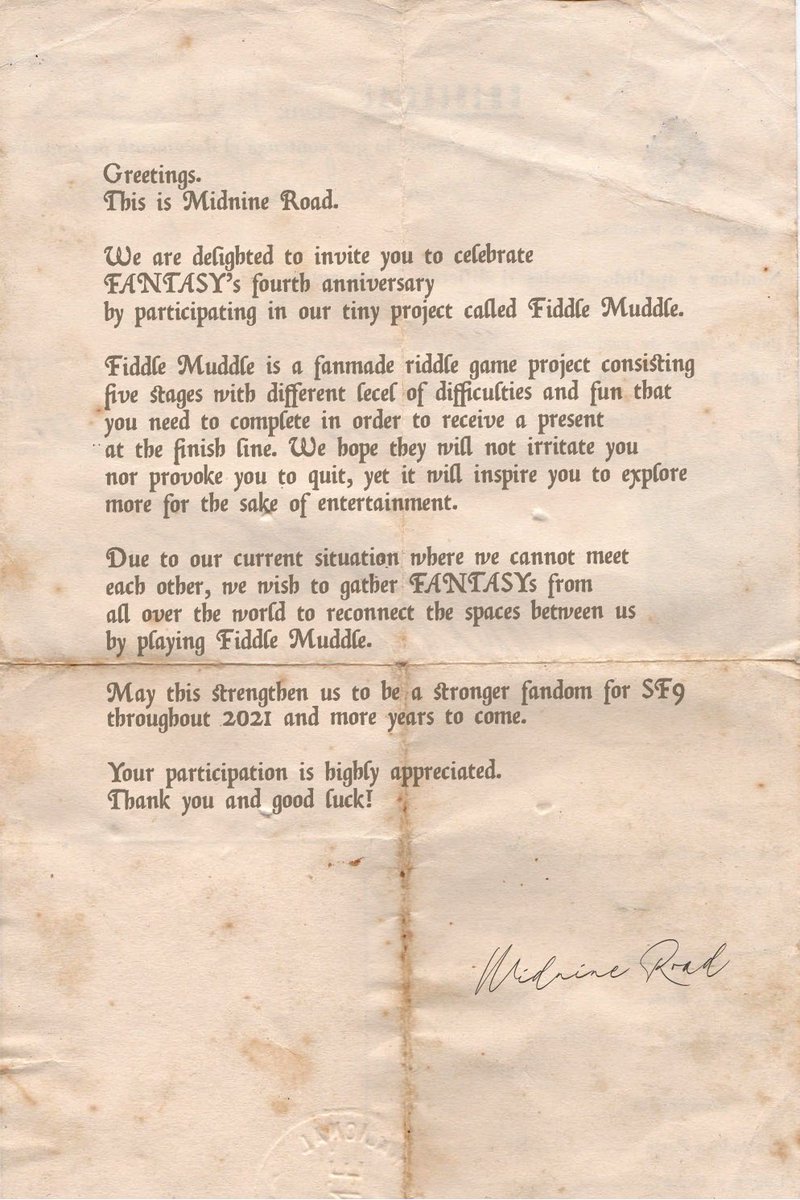 Greetings.
This is Midnine Road.
We are delighted to invite you to celebrate
FANTASY's fourth anniversary
by participating in our tiny project called Fiddle Muddle.
Fiddle Muddle is a fanmade riddle game project consisting
five stages with different lecel of difficulties and fun that
you need to complete in order to receive a present
at the finish line. We hope they will not irritate you
nor provoke you to quit, yet it will inspire you to explore
more for the sake of entertainment.
Due to our current situation where we cannot meet
each other, we wish to gather FANTASYs from
all over the world to reconnect the spaces between us
by playing Fiddle Muddle.
May this strengthen us to be a stronger fandom for SF9
throughout 2021 and more years to come.
Your participation is highly appreciated.
Thank you and good luck!
Midnine Road